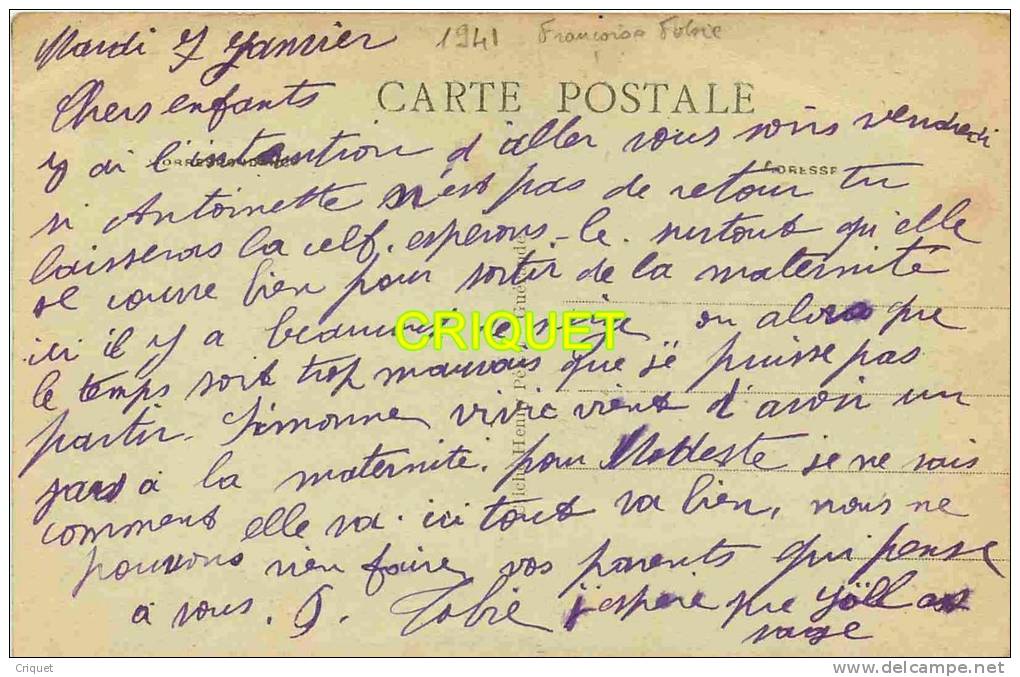 Mardi 7 Janvier 1941 Françoise Tobie
CARTE POSTALE
Chers enfants
CORRESPONDANCE
ADRESSE
y ai l'intention d'aller vous voir vendredi
si Antoinette n'est pas de retour tu
laisseras la clef. esperons-le. surtout qu'elle
se couvre bien pour sortir de la maternité
ici il y a beaucoup de neige ou alors que
le temps soit trop mauvais que je puisse pas
partir. Simonne vient d'avoir un
gars à la maternité. pour Modeste je ne sais
comment elle va. ici tout va bien, nous ne
pouvons rien faire, vos parents qui pense
à vous. Tobie j'espère que Joël
sage
Cliché Henri Guérande
CRIQUET
Criquet
http://www.delcampe.net